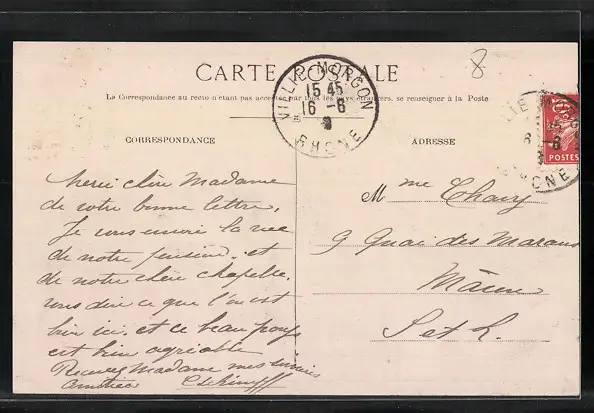 8
CARTE POSTALE
La Correspondance au recto n'étant pas acceptée par tous les pays étrangers, se renseigner à la Poste
VILLIÉ-MORGON
15 45
16 -6
8
RHONE
POSTES
CORRESPONDANCE
ADRESSE
Merci chère Madame
de votre bonne lettre,
Je vous envoie la vue
de notre pension et
de notre chère chapelle.
vous dire ce que l'on est
bien ici, et ce beau pays
est bien agréable
Recevez Madame mes
amitiés
Mme
9 Quai des Marans
Mâcon
S et L.